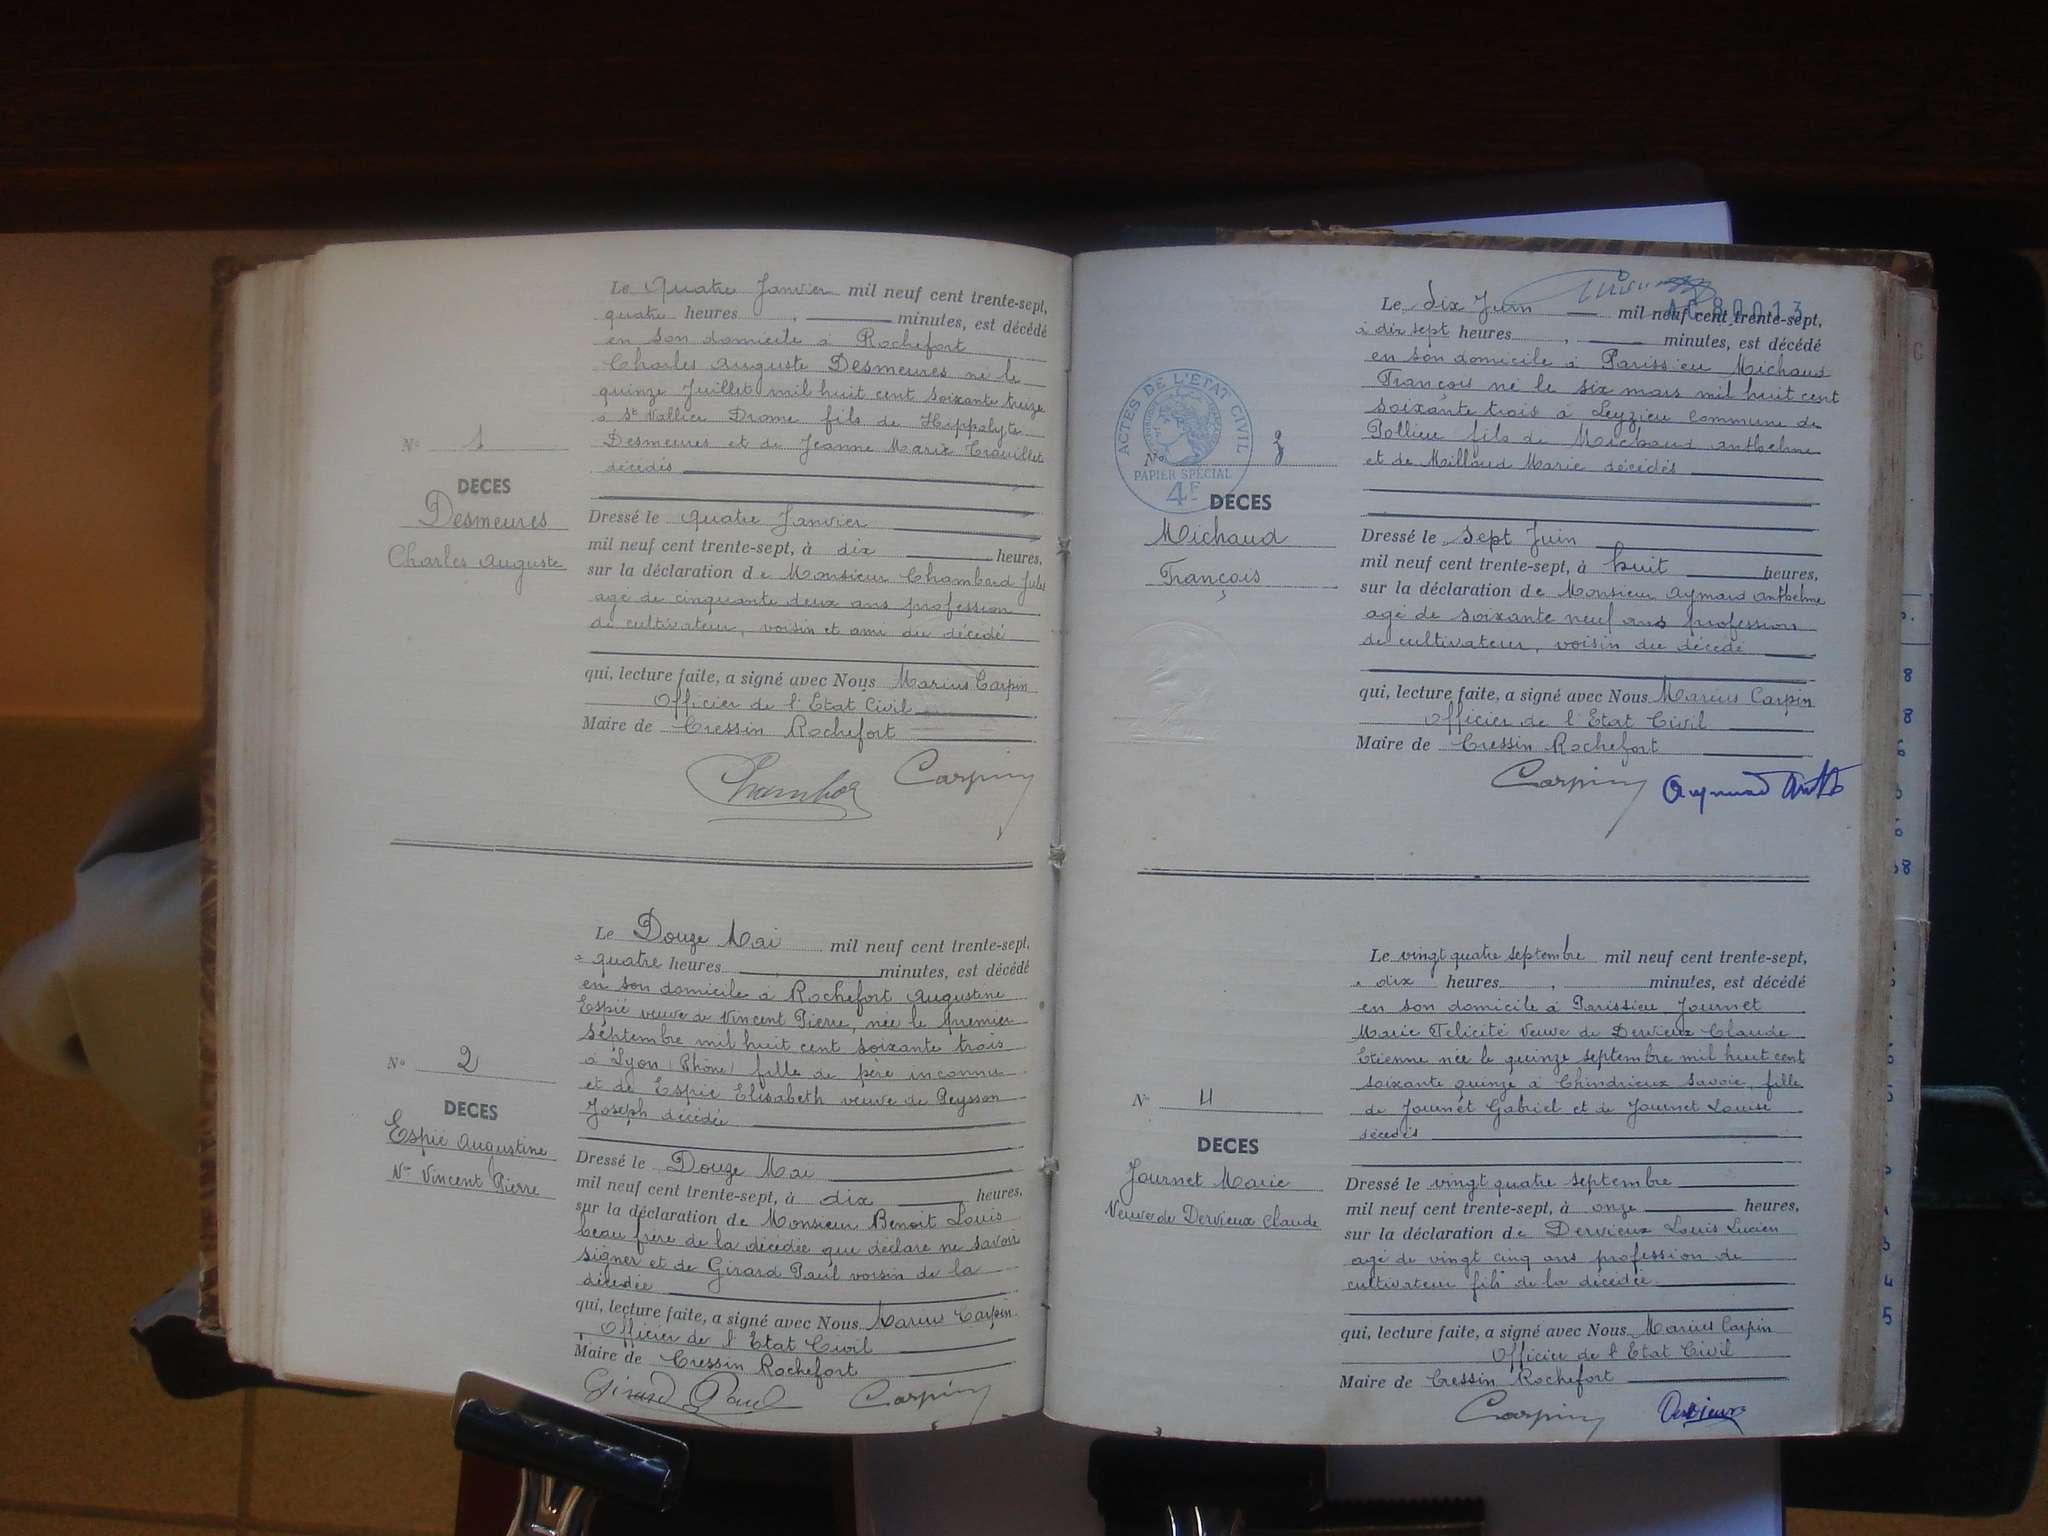 Le Quatre Janvier mil neuf cent trente-sept,
quatre heures , minutes, est décédé
en son domicile à Rochefort
Charles Auguste Desmeures né le
quinze Juillet mil huit cent soixante treize
à St Vallier Drome fils de Hippolyte
Desmeures et de Jeanne Marie Trouillet
décédés
No 1
DECES
Desmeures
Charles Auguste
Dressé le quatre Janvier
mil neuf cent trente-sept, à dix heures,
sur la déclaration de Monsieur Chambard Jules
agé de cinquante deux ans profession
de cultivateur, voisin et ami du décédé
qui, lecture faite, a signé avec Nous Marius Carpin
Officier de l'Etat Civil
Maire de Cressin Rochefort
Carpin
Le Douze Mai mil neuf cent trente-sept,
à quatre heures , minutes, est décédé
en son domicile à Rochefort Augustine
Espié veuve de Vincent Pierre, née le premier
septembre mil huit cent soixante trois
à Lyon (Rhône) fille de père inconnu
et de Espié Elisabeth veuve de Peysson
Joseph décédée
No 2
DECES
Espié Augustine
Vve Vincent Pierre
Dressé le Douze Mai
mil neuf cent trente-sept, à dix heures,
sur la déclaration de Monsieur Benoit Louis
beau frère de la décédée que déclare ne savoir
signer et de Girard Paul voisin de la
décédée
qui, lecture faite, a signé avec Nous Marius Carpin
Officier de l'Etat Civil
Maire de Cressin Rochefort
Girard Paul Carpin
AC 80013
Le dix Juin mil neuf cent trente-sept,
à dix sept heures , minutes, est décédé
en son domicile à Parissieu Michaud
François né le six mars mil huit cent
soixante trois à Leyzieu commune de
Pollieu fils de Michaud Anthelme
et de Milloud Marie décédés
ACTES DE L'ÉTAT CIVIL
PAPIER SPÉCIAL
4F
No 3
DECES
Michaud
François
Dressé le Sept Juin
mil neuf cent trente-sept, à huit heures,
sur la déclaration de Monsieur Aymard Anthelme
agé de soixante neuf ans profession
de cultivateur, voisin du décédé
qui, lecture faite, a signé avec Nous Marius Carpin
Officier de l'Etat Civil
Maire de Cressin Rochefort
Carpin Aymard Anth
Le vingt quatre septembre mil neuf cent trente-sept,
à dix heures , minutes, est décédé
en son domicile à Parissieu Journet
Marie Félicité Veuve de Dervieux Claude
Etienne née le quinze septembre mil huit cent
soixante quinze à Chindrieux Savoie, fille
de Journet Gabriel et de Journet Louise
décédés
No 4
DECES
Journet Marie
Veuve de Dervieux Claude
Dressé le vingt quatre septembre
mil neuf cent trente-sept, à onze heures,
sur la déclaration de Dervieux Louis Lucien
agé de vingt cinq ans profession de
cultivateur fils de la décédée
qui, lecture faite, a signé avec Nous Marius Carpin
Officier de l'Etat Civil
Maire de Cressin Rochefort
Carpin Dervieux